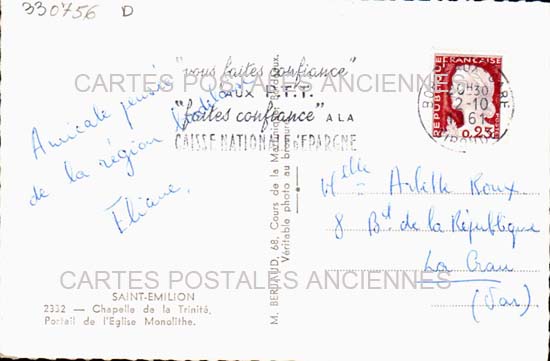 330756 D
CARTES POSTALES ANCIENNES
"vous faites confiance"
AUX P.T.T.
"faites confiance" A LA
CAISSE NATIONALE D'EPARGNE
REPUBLIQUE FRANÇAISE
0,25
BO RE
0H30
2-10
61
Amicale pensée
de la région bordelaise
Eliane.
M. BERJAUD, 68, Cours de la Martinique, Bordeaux.
Véritable photo au bromure
Melle Arlette Roux
8 Bt de la République
La Crau
(Var)
CARTES POSTALES ANCIENNES
SAINT-EMILION
2332 — Chapelle de la Trinité,
Portail de l'Eglise Monolithe.